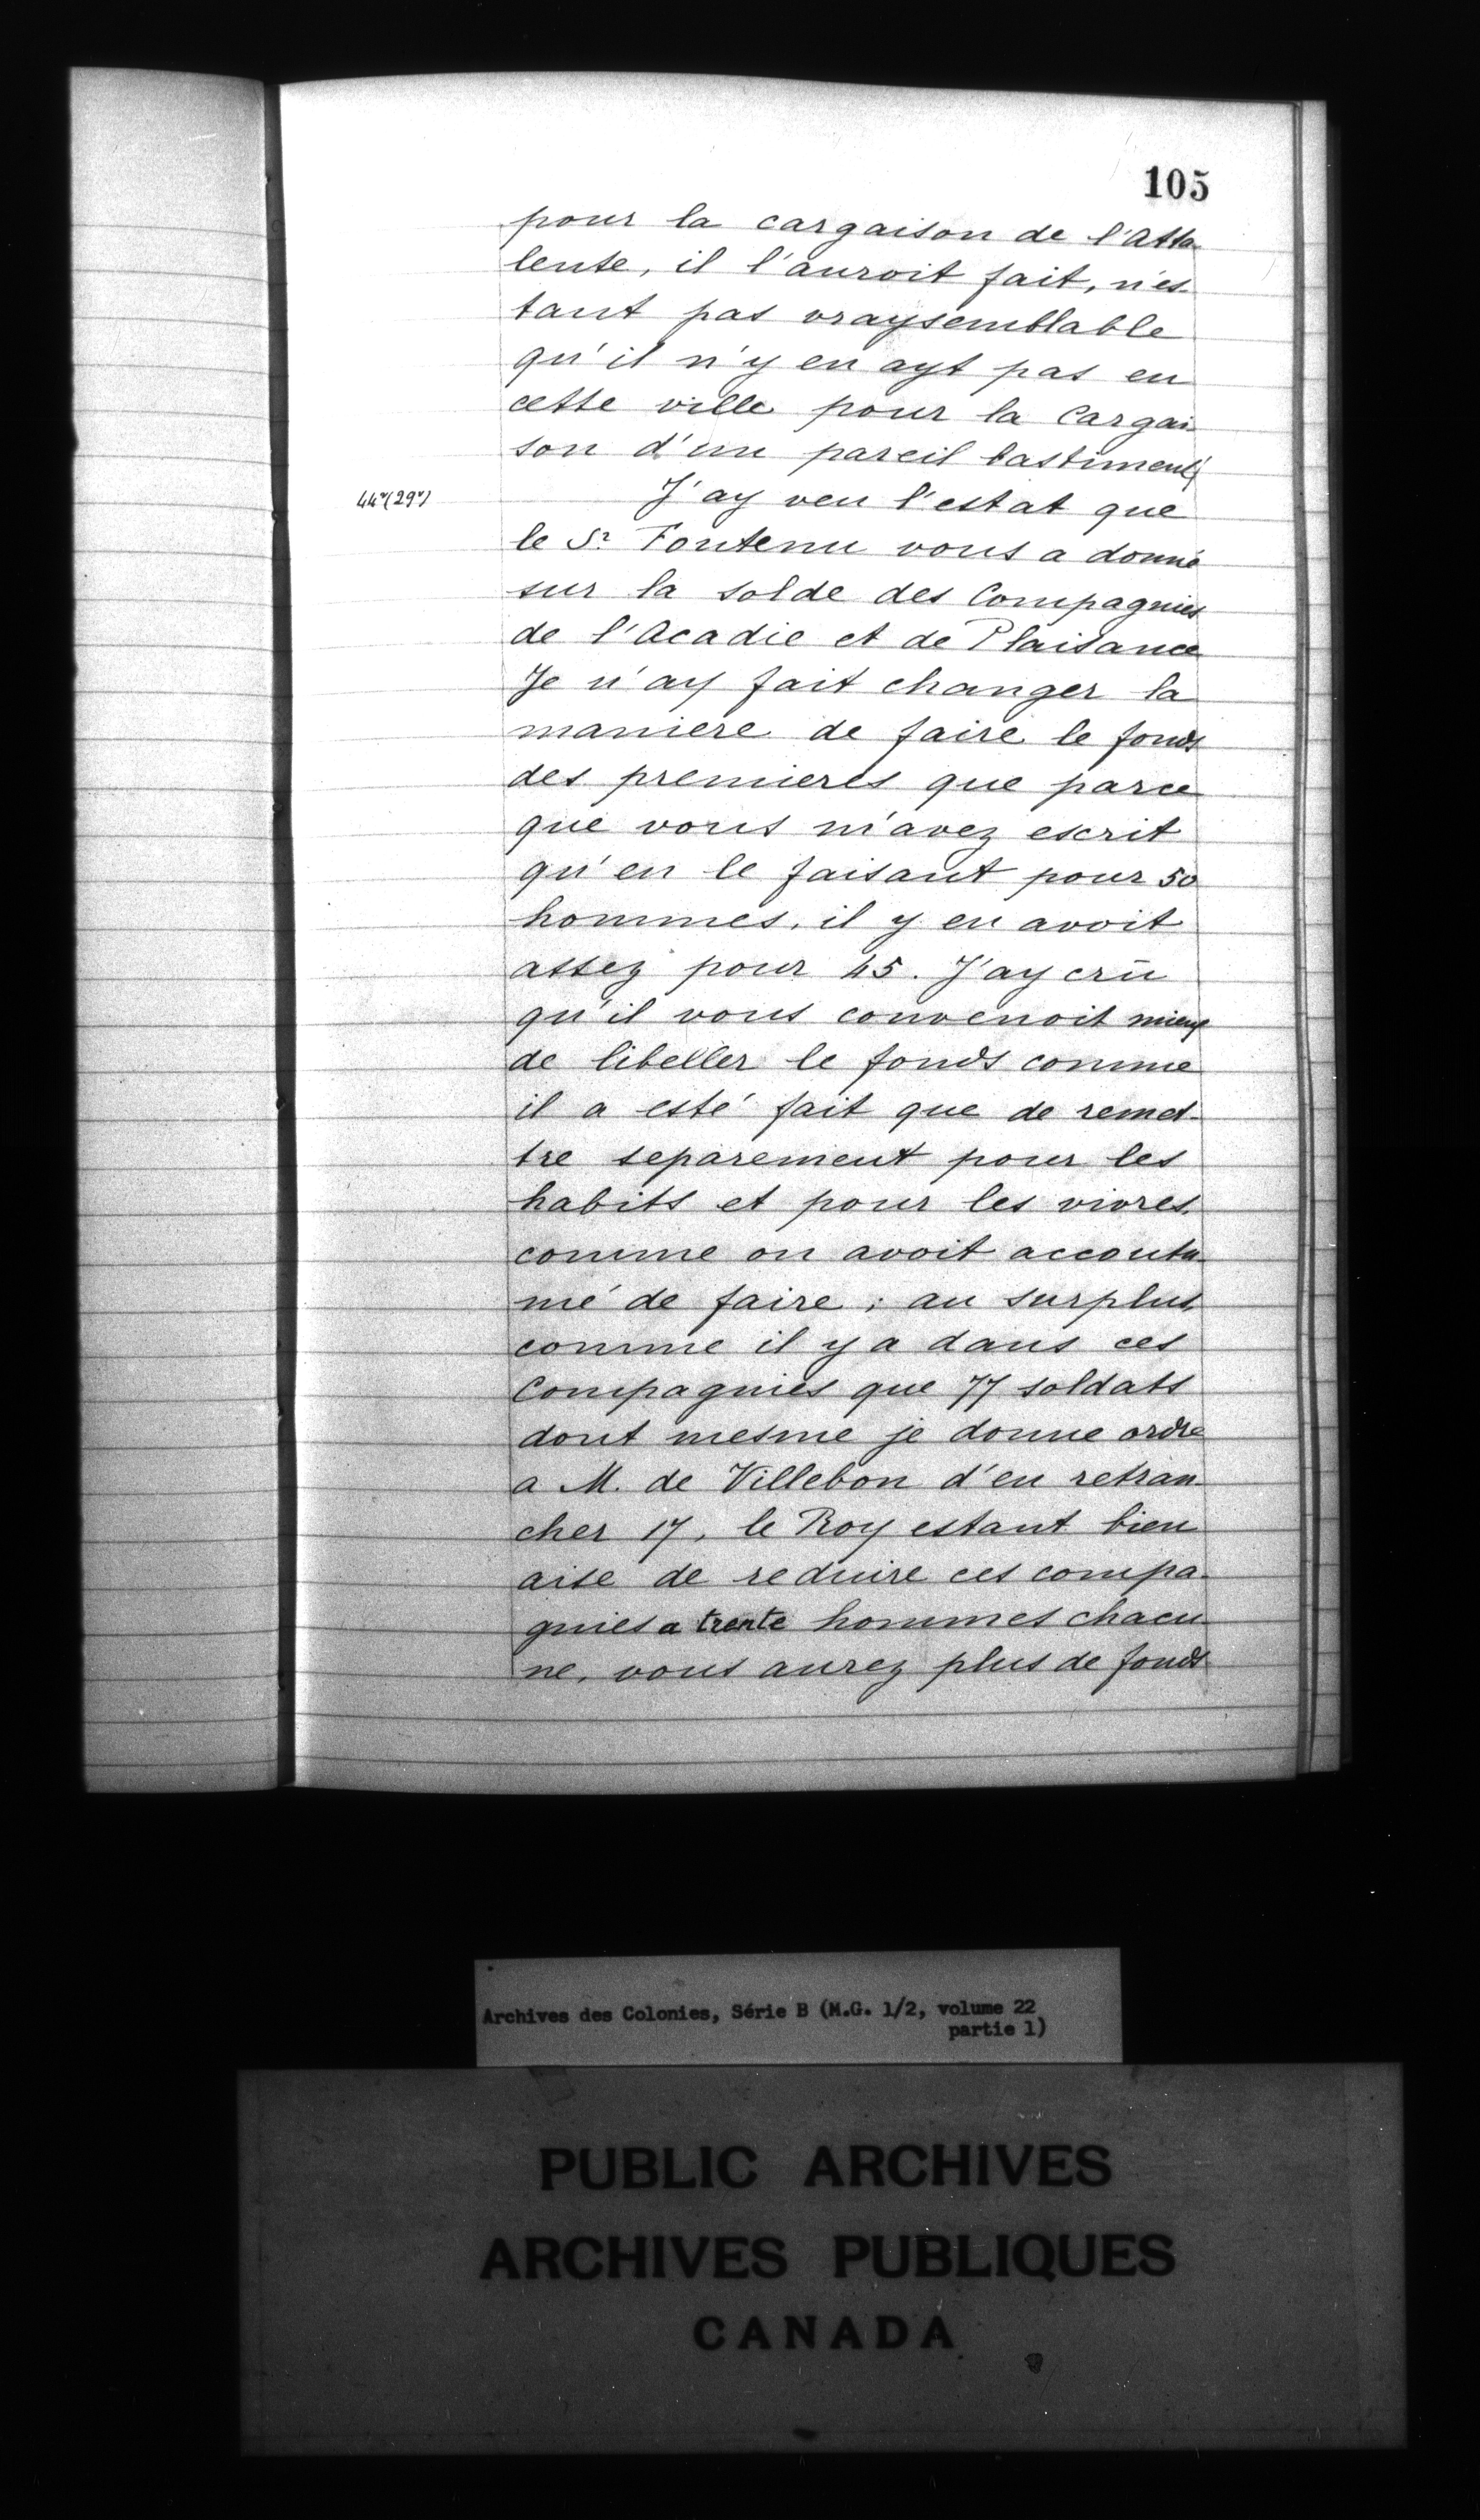 105
pour la cargaison de l'Atta
lente, il l'auroit fait, n'es-
tant pas vraysemblable
qu'il n'y en ayt pas en
cette ville pour la Cargai-
son d'un pareil bastiment
44v(29v)
J'ay veu l'estat que
le Sr Fontenu vous a donné
sur la solde des Compagnies
de l'Acadie et de Plaisance
Je n'ay fait changer la
maniere de faire le fonds
des premieres que parce
que vous m'avez escrit
qu'en le faisant pour 50
hommes, il y en avoit
assez pour 45. J'ay crû
qu'il vous convenoit mieux
de libeller le fonds comme
il a esté fait que de remet-
tre separement pour les
habits et pour les vivres,
comme on avoit accoutu-
mé de faire ; au surplus,
comme il y a dans ces
Compagnies que 77 soldats
dont mesme je donne ordre
a M. de Villebon d'en retran-
cher 17, le Roy estant bien
aise de reduire ces compa-
gnies a trente hommes chacu-
ne, vous aurez plus de fonds
Archives des Colonies, Série B (M.G. 1/2, volume 22
partie 1)
PUBLIC ARCHIVES
ARCHIVES PUBLIQUES
CANADA